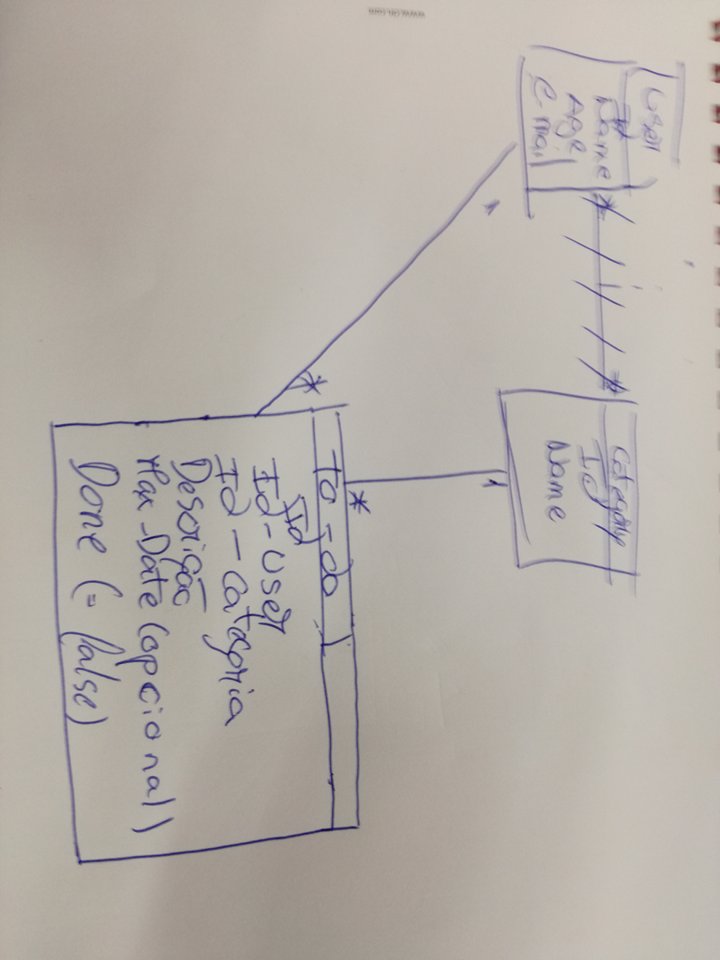 User
Id
Name
Age
E-mail
*
*
Category
Id
Name
1
*
1
*
To-do
Id
Id-User
Id-Categoria
Descrição
Max-Date (opcional)
Done (= false)